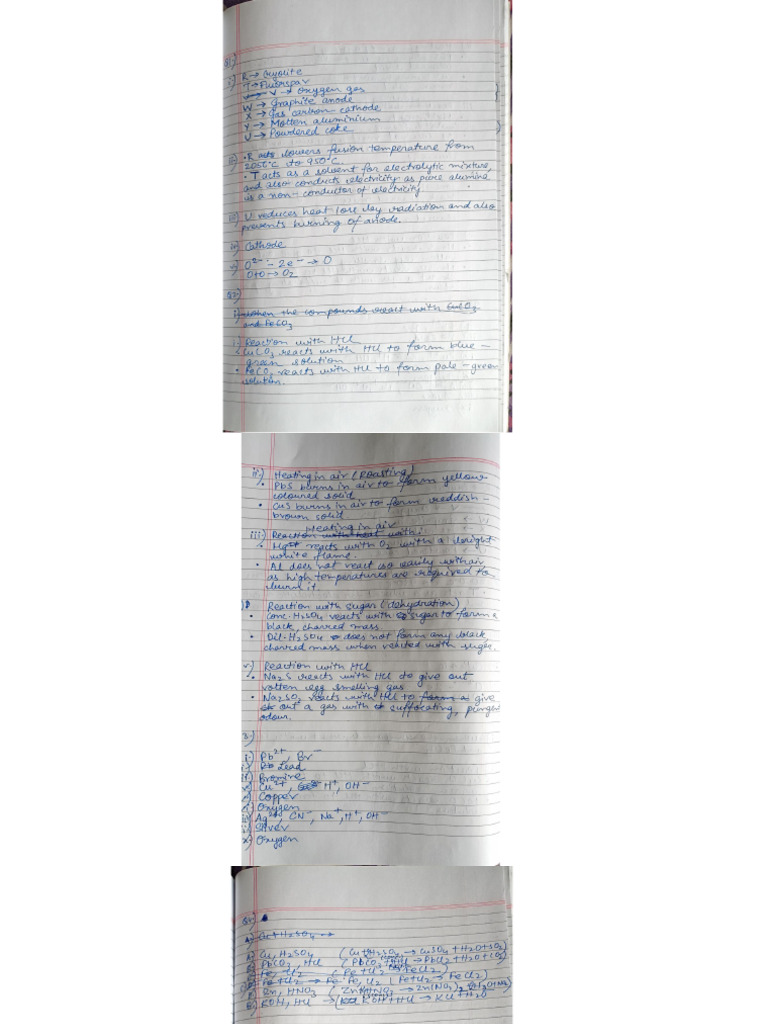 Q1.)
i.) R → Cryolite
T → Fluorspar
V → Oxygen gas
W → Graphite anode
X → Gas carbon cathode
Y → Molten aluminium
U → Powdered coke
ii) • R acts lowers fusion temperature from
2050°C to 950°C.
• T acts as a solvent for electrolytic mixture,
and also conducts electricity as pure alumina
is a non-conductor of electricity
iii) U reduces heat loss by radiation and also
prevents burning of anode.
iv) Cathode
v) O²⁻ - 2e⁻ → O
O+O → O₂
Q2.)
i) When the compounds react with CuCO₃
and FeCO₃
i.) Reaction with HCl
• CuCO₃ reacts with HCl to form blue-
green solution
• FeCO₃ reacts with HCl to form pale-green
solution.
ii.) Heating in air (Roasting)
• PbS burns in air to form yellow
coloured solid
• CuS burns in air to form reddish-
brown solid
Heating in air
iii.) Reaction with heat with:
• Mg reacts with O₂ with a bright
white flame.
• Al does not react so easily with air
as high temperatures are required to
burn it.
Reaction with sugar (dehydration)
• Conc. H₂SO₄ reacts with sugar to form a
black, charred mass
• Dil. H₂SO₄ does not form any black
charred mass when reacted with sugar.
v.) Reaction with HCl
• Na₂S reacts with HCl to give out
rotten egg smelling gas
• Na₂SO₃ reacts with HCl to form a give
out a gas with suffocating, pungent
odour.
3.)
i.) Pb²⁺, Br⁻
Lead
Bromine
Cu²⁺, H⁺, OH⁻
Copper
Oxygen
Ag⁺, CN⁻, Na⁺, H⁺, OH⁻
Silver
Oxygen
Q4.)
A.) Cu + H₂SO₄ →
A) Cu, H₂SO₄ (Cu + H₂SO₄ → CuSO₄ + H₂O + SO₂)
PbCO₃, HCl (PbCO₃ + HCl → PbCl₂ + H₂O + CO₂)
Fe, Cl₂ (Fe + Cl₂ → FeCl₂)
Fe + Cl₂ → Fe Fe, Cl₂ (Fe + Cl₂ → FeCl₂)
Zn, HNO₃ (Zn + HNO₃ → Zn(NO₃)₂
KOH, HCl → KOH + HCl → KCl + H₂O